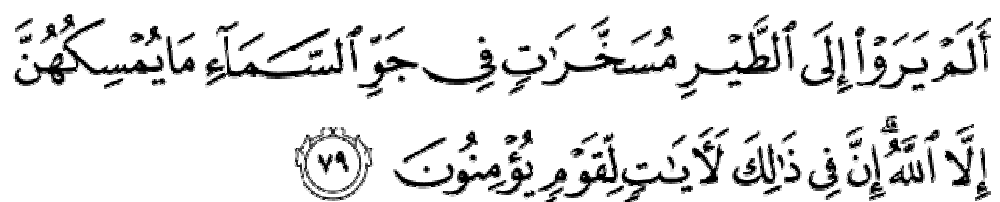 أَلَمْ يَرَوْا۟ إِلَى ٱلطَّيْرِ مُسَخَّرَٰتٍ فِى جَوِّ ٱلسَّمَآءِ مَا يُمْسِكُهُنَّ
إِلَّا ٱللَّهُ ۗ إِنَّ فِى ذَٰلِكَ لَـَٔايَٰتٍ لِّقَوْمٍ يُؤْمِنُونَ ٧٩